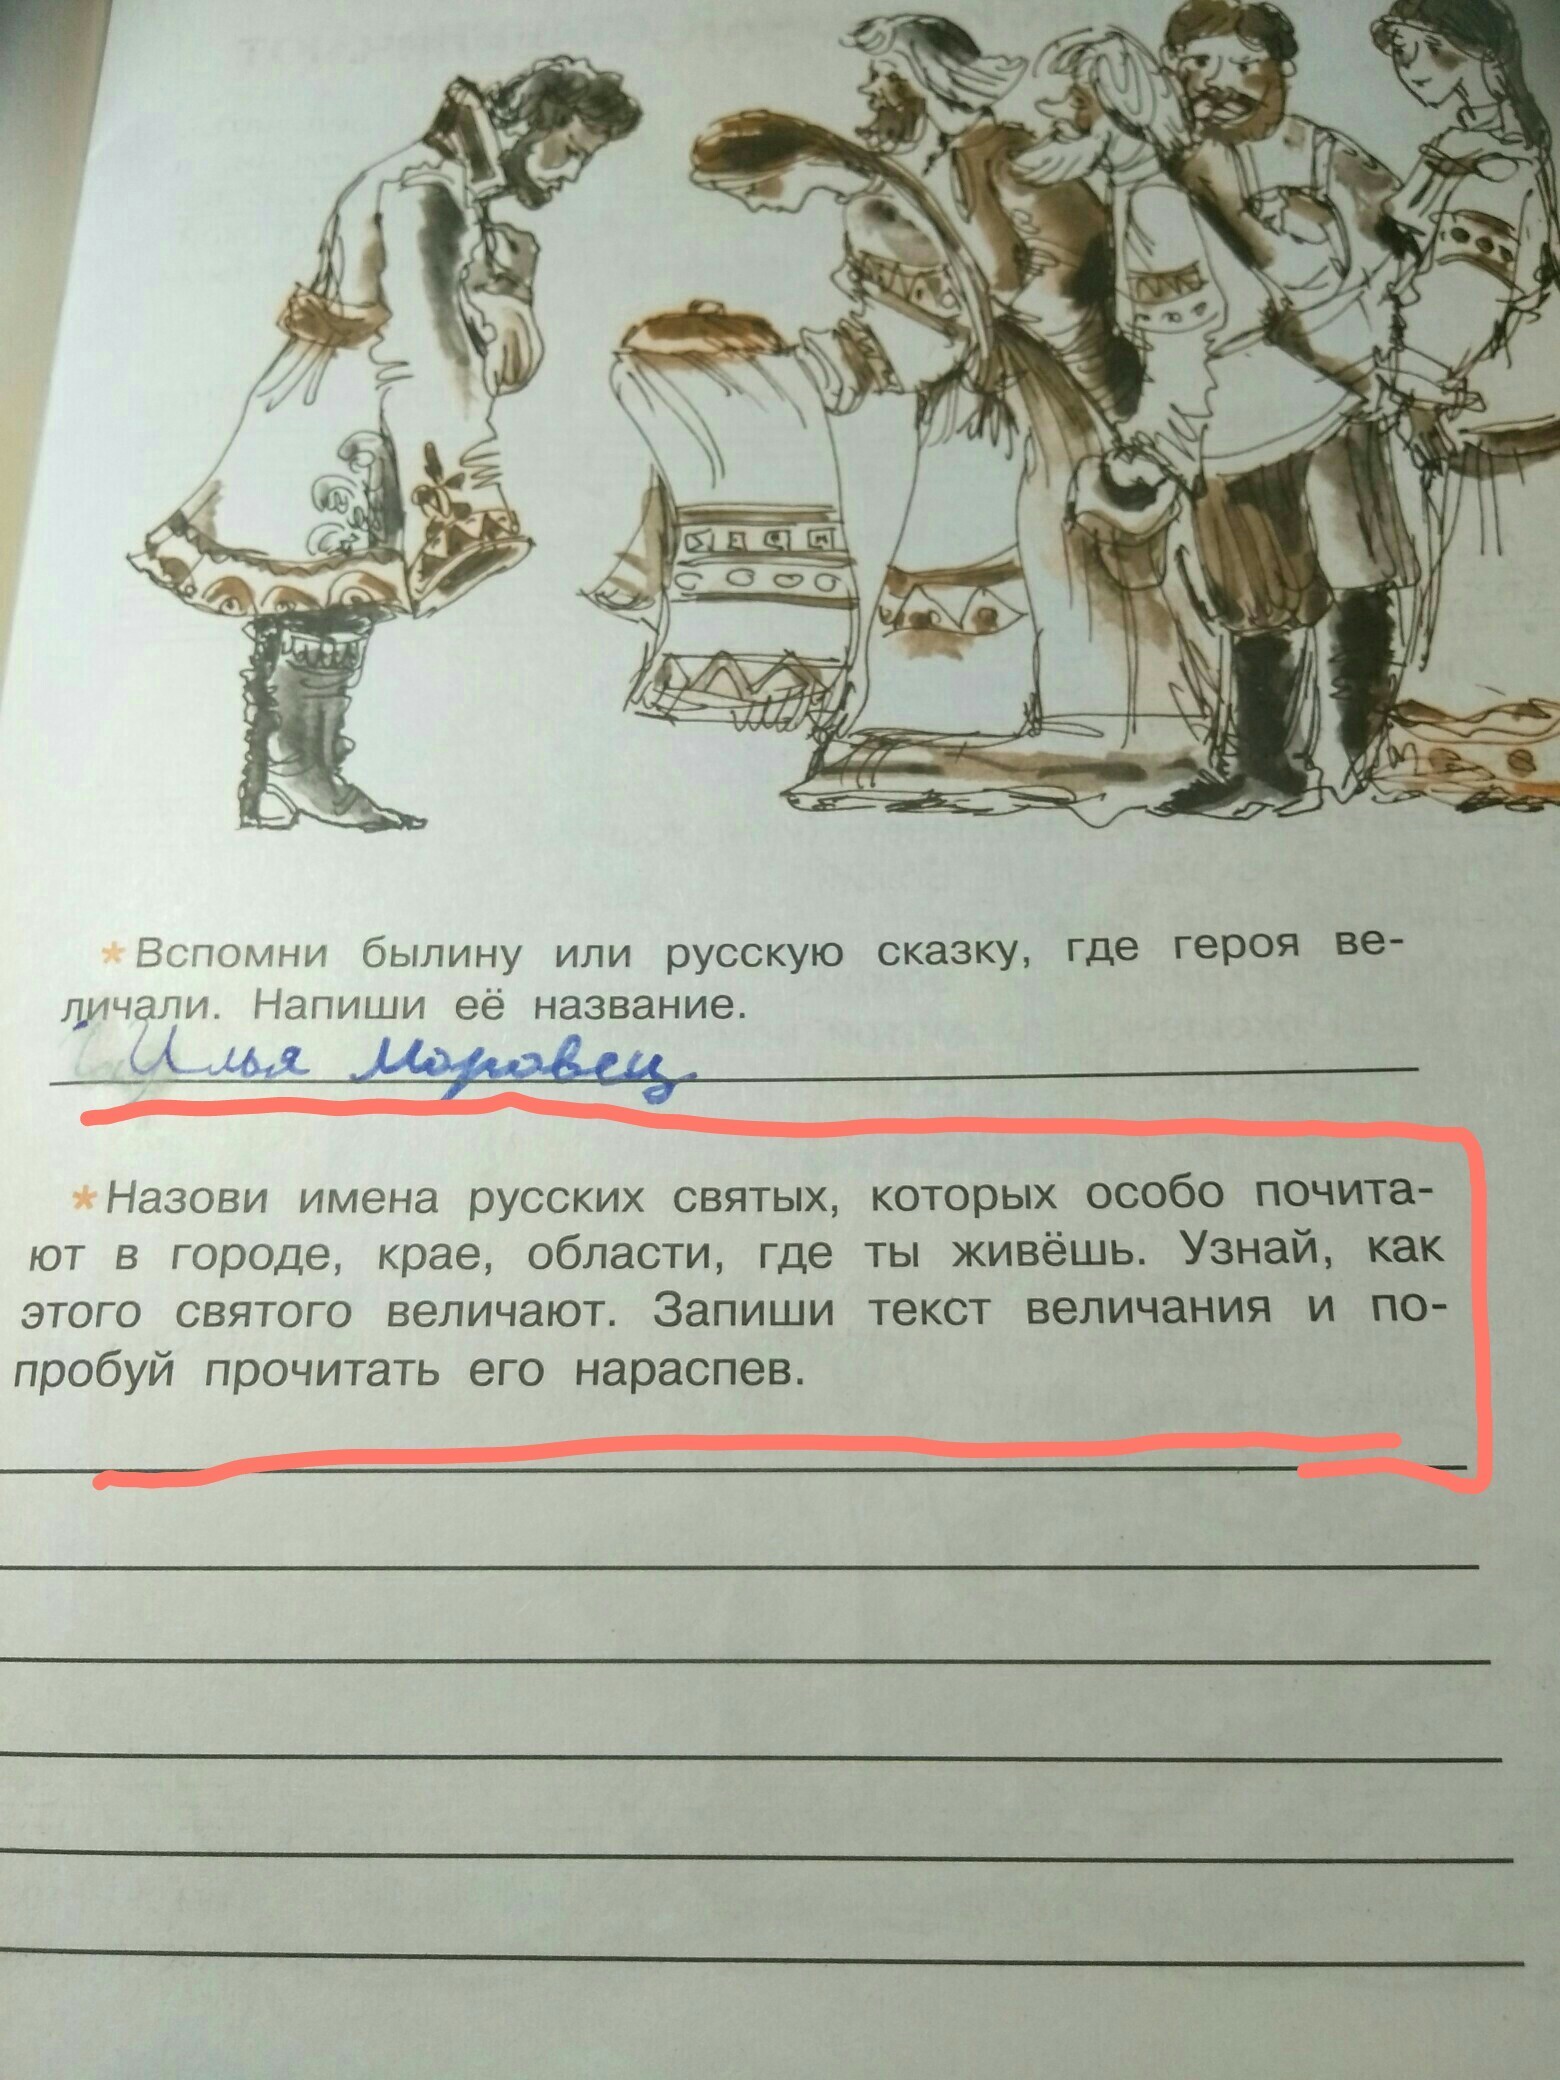 *Вспомни былину или русскую сказку, где героя ве-
личали. Напиши её название.
Илья Моровец
*Назови имена русских святых, которых особо почита-
ют в городе, крае, области, где ты живёшь. Узнай, как
этого святого величают. Запиши текст величания и по-
пробуй прочитать его нараспев.